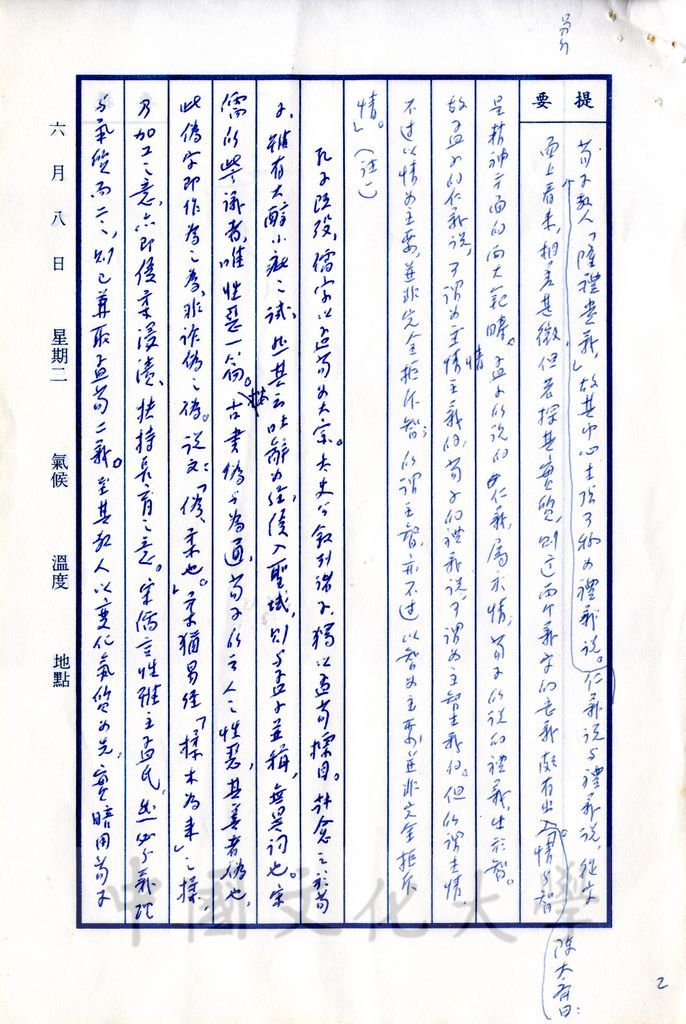 提要
荀子教人「隆禮貴義」故其中心主張可稱為禮義說。仁義說與禮義說,從文
面上看來,相差甚微,但若探其實質,則這兩个義字的意義頗有出入。情與智 陳大齊曰:
是精神方面的兩大範疇。孟子所說的仁義,屬於情,荀子所說的禮義,生於智。
故孟子的仁義說,可謂為主情主義的,荀子的禮義說,可謂為主智主義的。但所謂主情
不过以情為主要,並非完全拒斥智;所謂主智,亦不过以智為主要,並非完全拒斥
情」。(註一)
孔子既歿,儒家以孟荀為大宗。太史公敘列諸子,獨以孟荀標目。韓愈之於荀
子,雖有大醇小疵之譏,然其云吐辭為經,優入聖域,則与孟子並稱,無異词也。宋
儒所以譏議者,唯性惡一篇。古書偽与為通,荀子所言人之性惡,其善者偽也,
此偽字即作為之為,非诈偽之偽。说文:「偽,
乃加工之意,亦即優柔浸漬,扶持長育之意。宋儒言性雖主孟氏,然必与義理
与氣質而二之,則已兼取孟荀二義。至其教人以變化氣質為先,實暗用荀子
六月八日 星期二 氣候 溫度 地點
2
中國文化大學